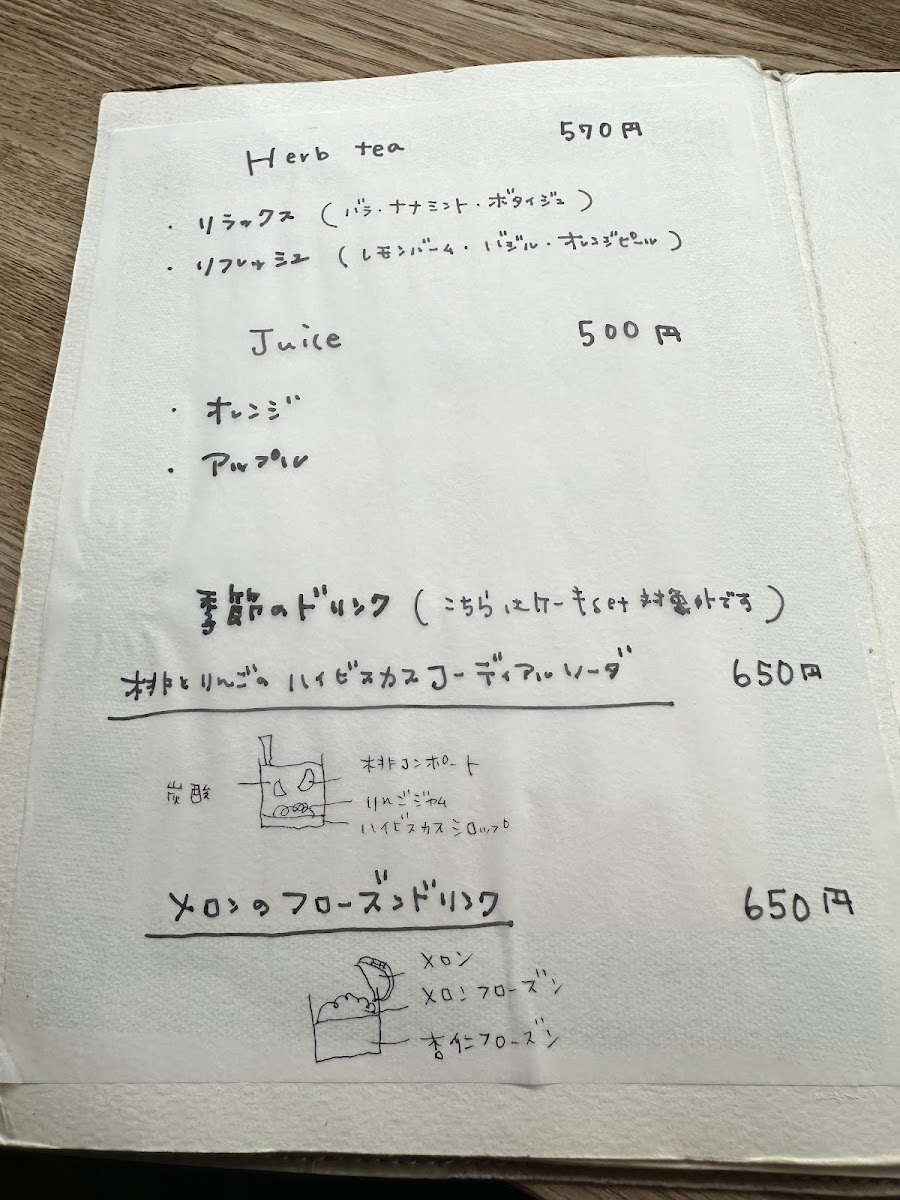 Herb tea 570円
・リラックス (バラ・ナナミント・ボダイジュ)
・リフレッシュ (レモンバーム・バジル・オレンジピール)
Juice 500円
・オレンジ
・アップル
季節のドリンク (こちらはケーキset対象外です)
桃とりんごのハイビスカスコーディアルソーダ 650円
炭酸
桃コンポート
りんごジャム
ハイビスカスシロップ
メロンのフローズンドリンク 650円
メロン
メロンフローズン
杏仁フローズン